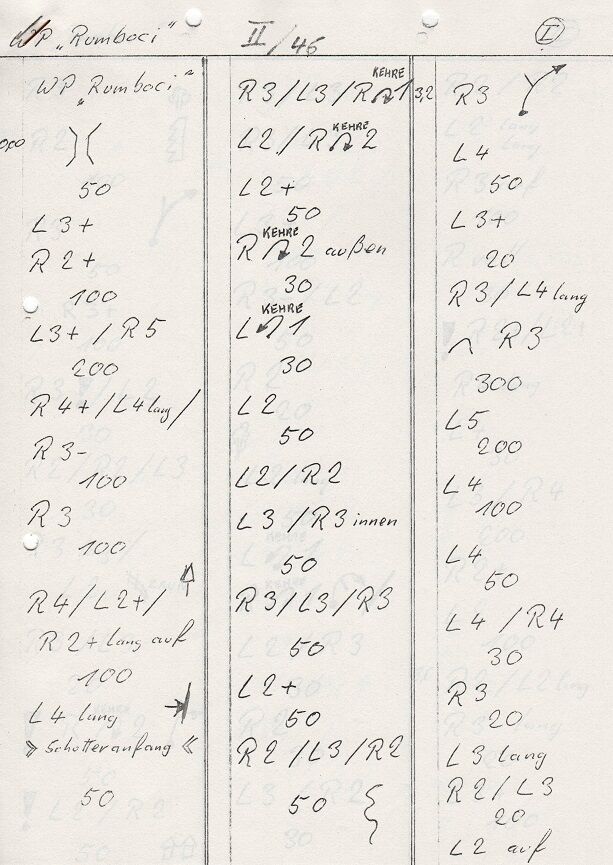 WP „Rombaci“ II/46 I
WP „Rombaci“
50
L3+
R2+
100
L3+ / R5
200
R4+/L4 lang/
R3-
100
R3
100
R4/L2+/
R2+ lang auf
100
L4 lang
» Schotteranfang «
50
KEHRE
R3/L3/R 1
KEHRE
L2/R 2
L2+
50
KEHRE
R 2 außen
30
KEHRE
L 1
30
L2
50
L2/R2
L3/R3 innen
50
R3/L3/R3
50
L2+
50
R2/L3/R2
50
3,2 R3
L4
50
L3+
20
R3/L4 lang
R3
300
L5
200
L4
100
L4
50
L4/R4
30
R3
20
L3 lang
R2/L3
20
L2 auf